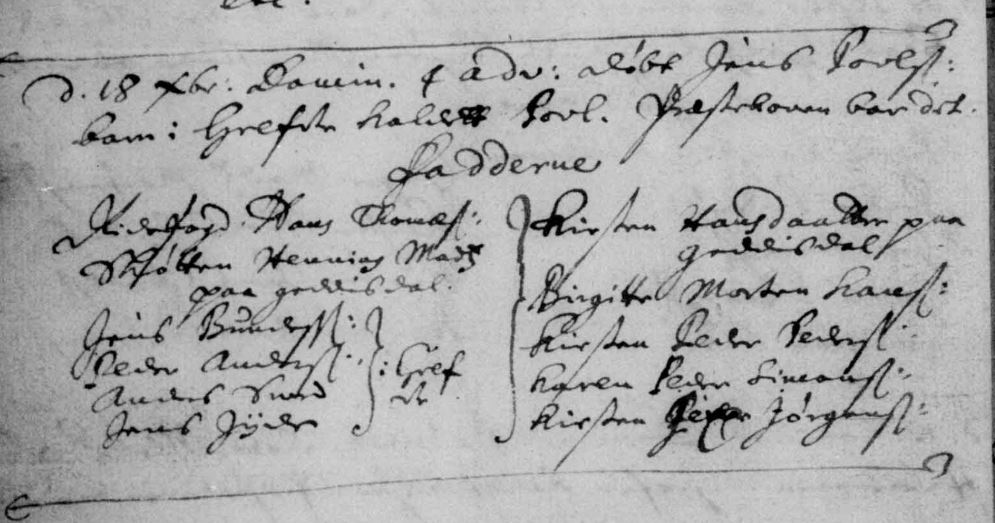 d. 18 Xbr: Domin. 4 adv: døbt Jens Povels:
barn i Greffte kaldet Povl. Præstekonen bar det.
Fadderne
Ridefogd Hans Thomæs:
Skøtten Hennig Mads
paa geddisdal.
Jens Bundess:
Peder Anders:
Anders Smed
Jens Jyde
: Gref
te
Kirsten Hansdaatter paa
geddisdal
Birgitte Morten Hans:
Kirsten Peder Peders:
Karen Peder Simons:
Kirsten Jørgens: